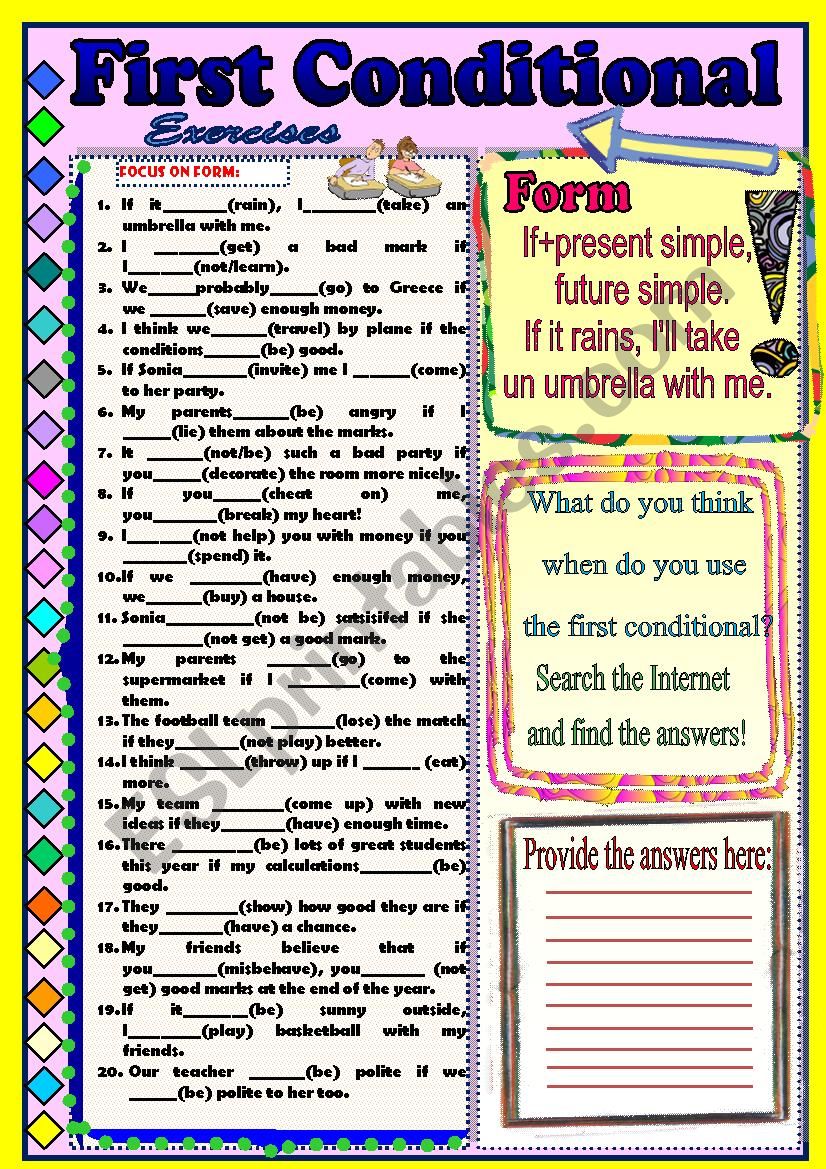 First Conditional
Exercises
FOCUS ON FORM:
1. If it_______(rain), I________(take) an
umbrella with me.
2. I _______(get) a bad mark if
I_______(not/learn).
3. We_____probably_____(go) to Greece if
we ______(save) enough money.
4. I think we______(travel) by plane if the
conditions______(be) good.
5. If Sonia_______(invite) me I ______(come)
to her party.
6. My parents______(be) angry if I
_____(lie) them about the marks.
7. It ______(not/be) such a bad party if
you_____(decorate) the room more nicely.
8. If you_____(cheat on) me,
you_______(break) my heart!
9. I_______(not help) you with money if you
_______(spend) it.
10.If we ________(have) enough money,
we______(buy) a house.
11. Sonia__________(not be) satsisifed if she
_________(not get) a good mark.
12. My parents _______(go) to the
supermarket if I ________(come) with
them.
13. The football team _______(lose) the match
if they_______(not play) better.
14. I think ________(throw) up if I ______ (eat)
more.
15. My team ________(come up) with new
ideas if they_______(have) enough time.
16. There _________(be) lots of great students
this year if my calculations________(be)
good.
17. They ________(show) how good they are if
they_______(have) a chance.
18. My friends believe that if
you_______(misbehave), you_______ (not
get) good marks at the end of the year.
19. If it_______(be) sunny outside,
I________(play) basketball with my
friends.
20. Our teacher ______(be) polite if we
_____(be) polite to her too.
Form
If+present simple,
future simple.
If it rains, I'll take
un umbrella with me.
What do you think
when do you use
the first conditional?
Search the Internet
and find the answers!
Provide the answers here:
ESLprintables.com